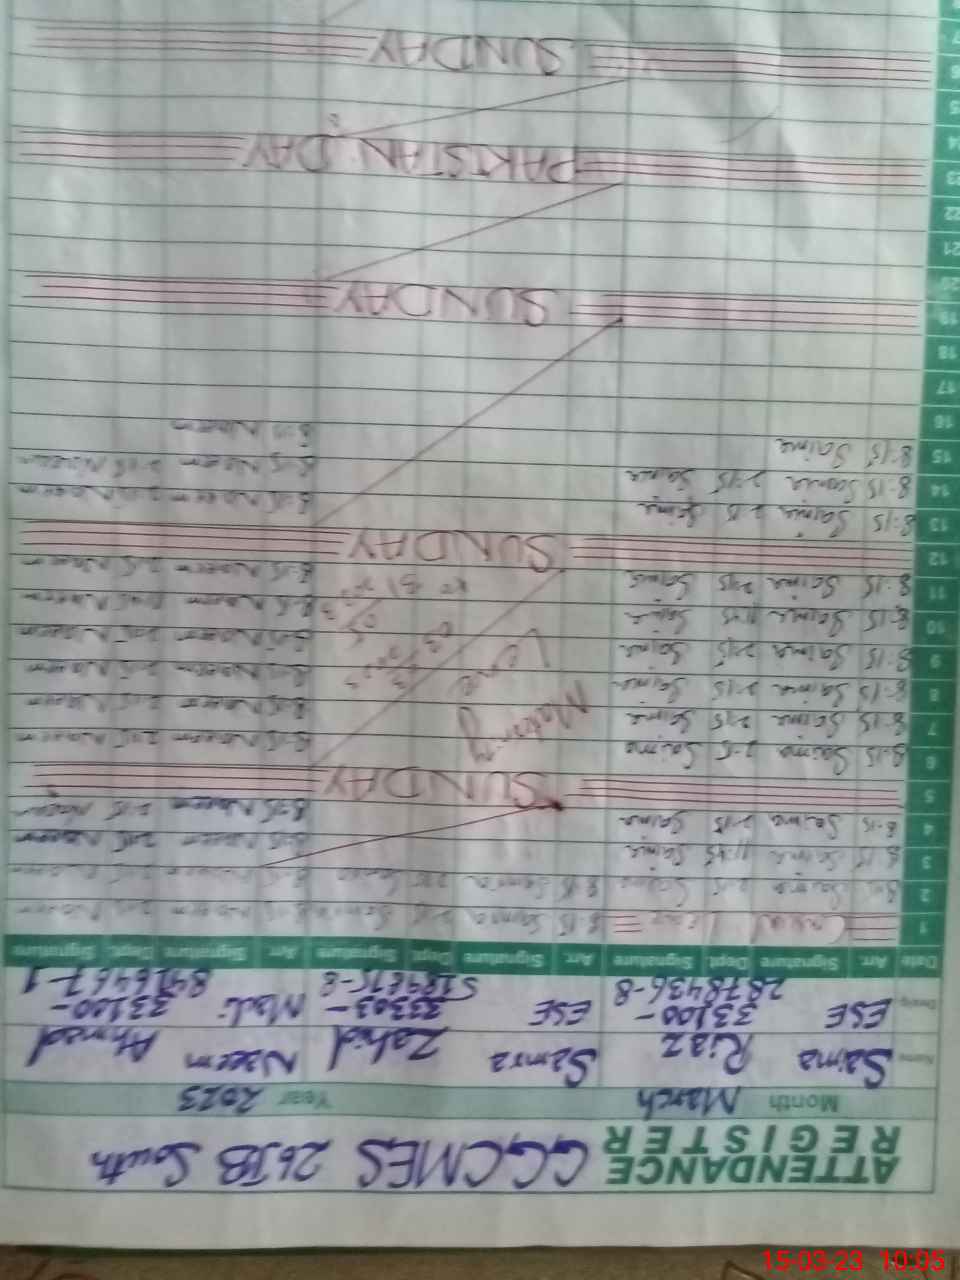 ATTENDANCE REGISTER GGCMES 26JB South
Month March Year 2023
Name Saima Riaz Samra Zahid Naeem Ahmed
Desig. ESE 33100-2878436-8 ESE 33303-5189675-8 Mali 33100-8426467-1
Date Arr. Signature Dept. Signature Arr. Signature Dept. Signature Arr. Signature Dept. Signature
1 Casual Leave 8:15 Samra 2:15 Samra 8:15 Naeem 2:15 Naeem
2 8:15 Saima 2:15 Saima 8:15 Samra 2:15 Samra 8:15 Naeem 2:15 Naeem
3 8:15 Saima 11:45 Saima 8:15 Naeem 2:15 Naeem
4 8:15 Saima 2:15 Saima 8:15 Naeem 2:15 Naeem
5 SUNDAY
6 8:15 Saima 2:15 Saima 8:15 Naeem 2:15 Naeem
7 8:15 Saima 2:15 Saima 8:15 Naeem 2:15 Naeem
8 8:15 Saima 2:15 Saima 8:15 Naeem 2:15 Naeem
9 8:15 Saima 2:15 Saima 8:15 Naeem 2:15 Naeem
10 8:15 Saima 11:45 Saima 8:15 Naeem 11:45 Naeem
11 8:15 Saima 2:15 Saima 8:15 Naeem 2:15 Naeem
Leave
12 SUNDAY
13 8:15 Saima 2:15 Saima 8:15 Naeem 2:15 Naeem
14 8:15 Saima 2:15 Saima 8:15 Naeem 2:15 Naeem
15 8:15 Saima 8:15 Naeem
16
17
18
19 SUNDAY
20
21
22
23 PAKISTAN DAY
24
25
26 SUNDAY
15-03-23 10:05